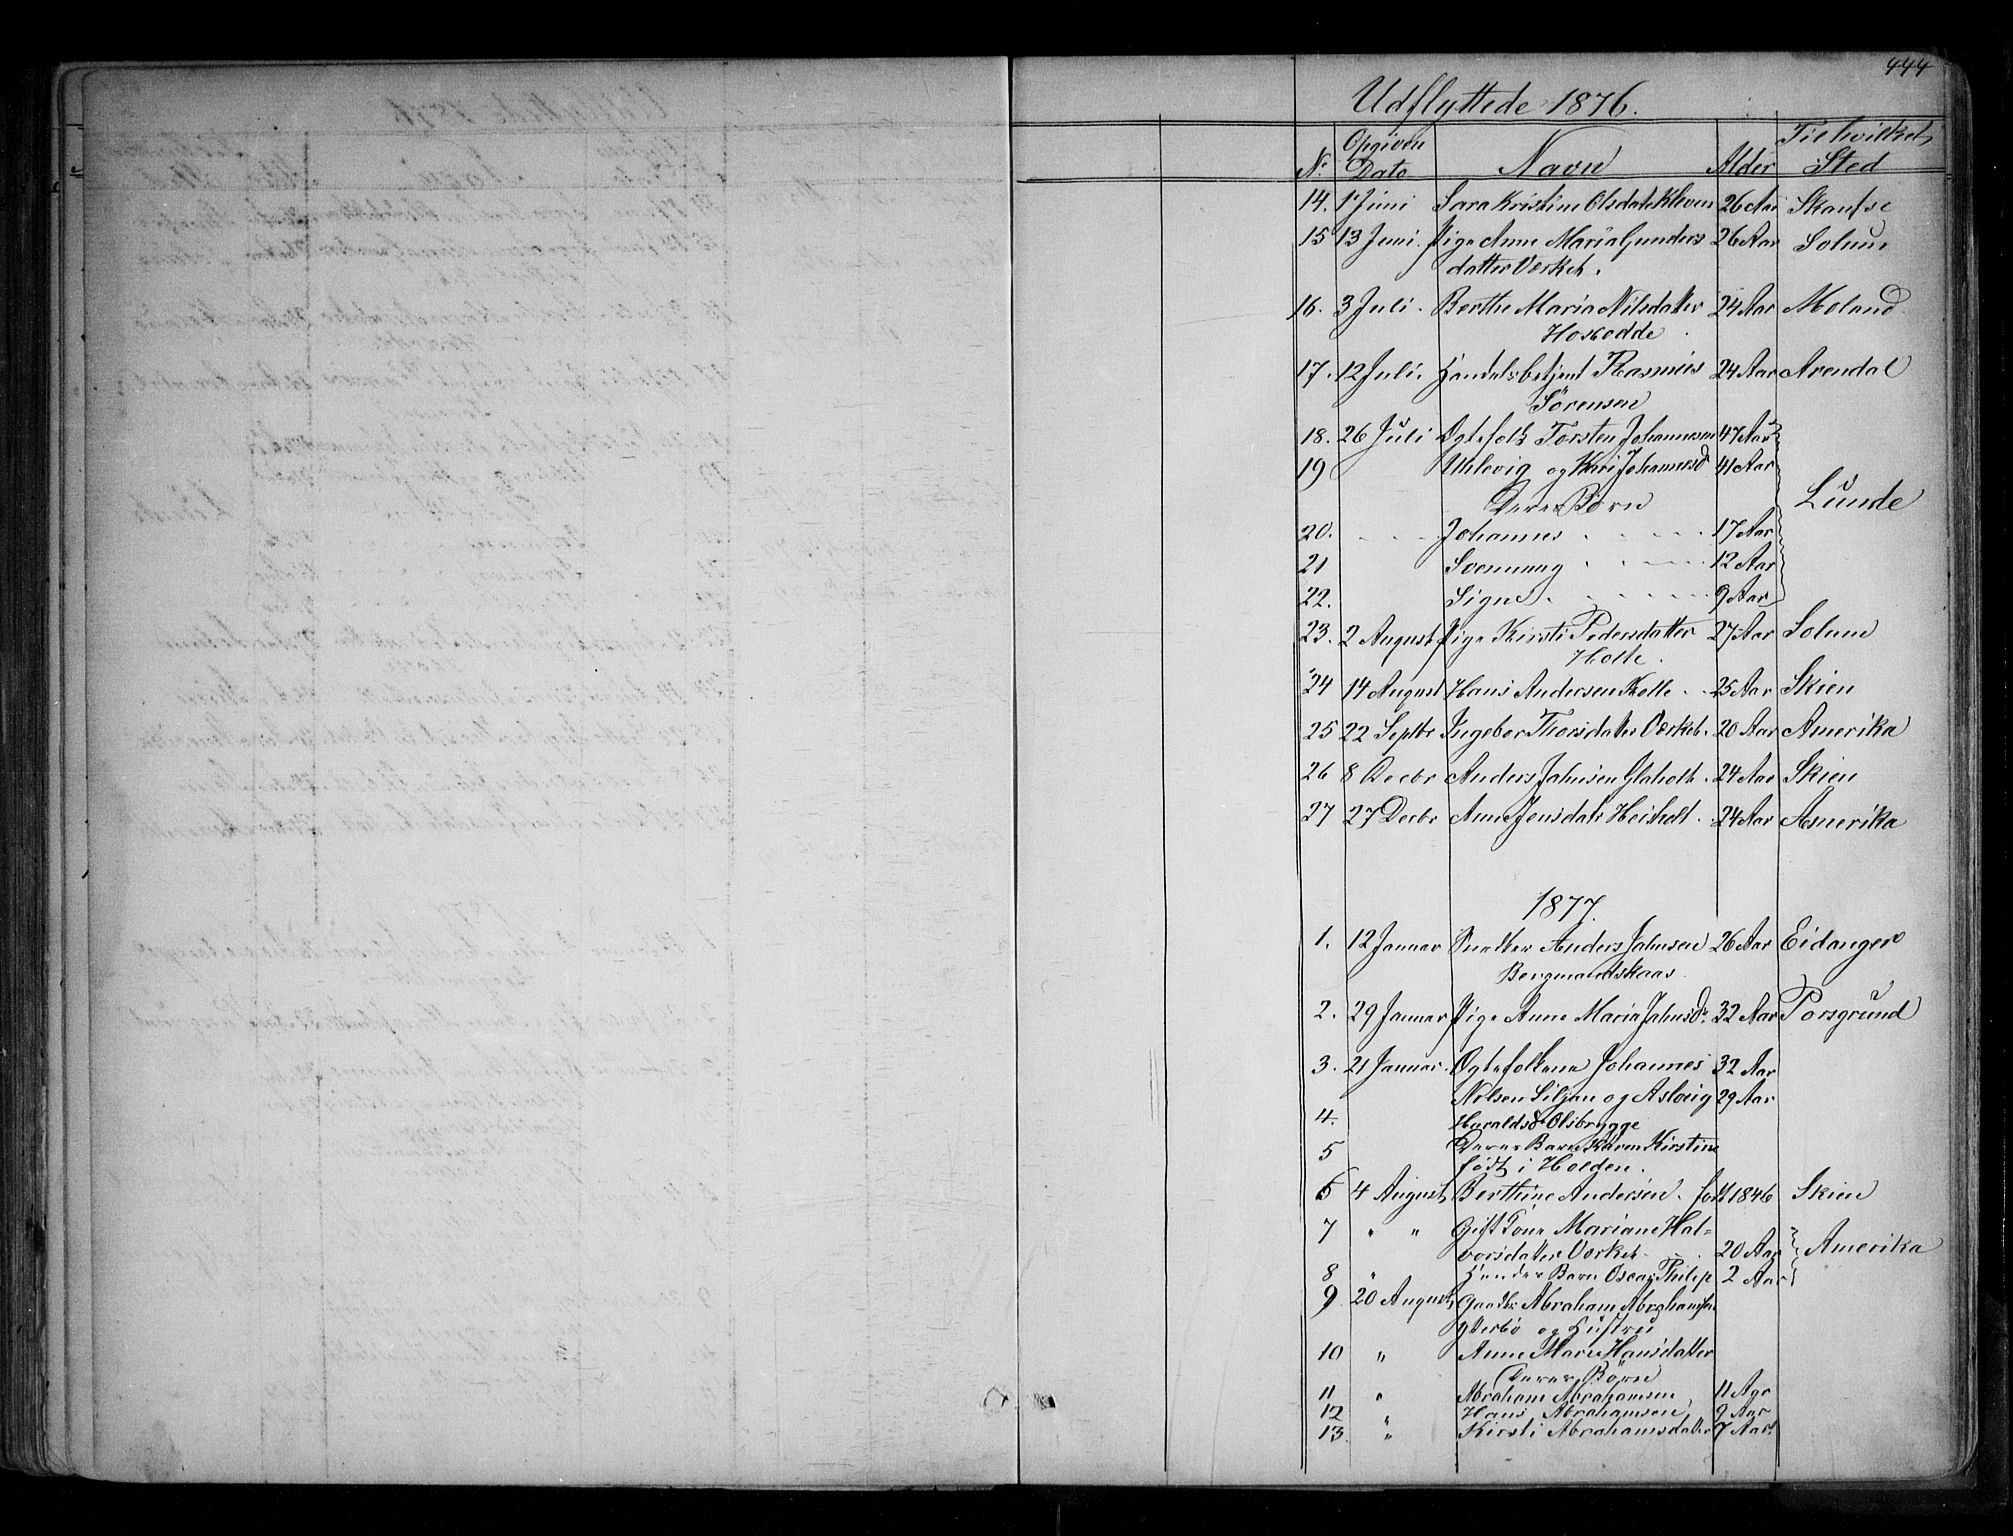 444
Udflyttede 1876.
No Opgiven Dato Navn Alder Til hvilket Sted
14. 1 Juni Sara Kristine Olsdatr Kleven 26 Aar
15 13 Juni. Pige Anne Maria Gunders 26 Aar Solum
datter Værket.
16. 3 Juli. Berthe Maria Nilsdatter 24 Aar Moland
17. 12 Juli. Handelsbetjent Rasmus 24 Aar Arendal
Sörensen
18. 26 Juli Ægtefolk Torsten Johannesen 47 Aar
19 Uhlevig og Kari Johannesd 41 Aar
Deres Börn Lunde
20. Johannes 17 Aar
21 Svennung 12 Aar
22. Signe 9 Aar
23. 2 August Pige Kirsti Pedersdatter 27 Aar Solum
Holte.
24 14 August Hans Andersen Holte 25 Aar Skien
25 22 Septbr Ingebor Thorsdatter Værket. 20 Aar Amerika
26 8 Decbr Anders Jahnsen 24 Aar Skien
27 27 Decbr Anne Jensdatr Heisholt. 24 Aar Amerika
1877.
1. 12 Januar Snedker Anders Jahnsen 26 Aar Eidanger
Bergmandskaas
2. 29 Januar Pige Anne Maria Jahnsdr 32 Aar Porsgrund
3. 21 Januar. Ægtefolkene Johannes 32 Aar
Nelsen Siljan og Aslevig 29 Aar
4. Haraldsd Olsbrygge
5 Deres Barn Karen Kirstine
født i Holden.
6 4 August Berthine Andersen. født 1846 Skien
7 " " Gift Tone Mariane Hal=
vorsdatter Værket 20 Aar Amerika
8 " Hendes Barn Oscar Philip 2 Aar
9 20 August Gaardbr Abraham Abrahamsen
Ytterbö og Hustru
10 " Anne Marie Hansdatter
Deres Börn
11 " Abraham Abrahamsen 11 Aar
12 " Hans Abrahamsen 9 Aar
13 " Kirsti Abrahamsdatter 7 Aar